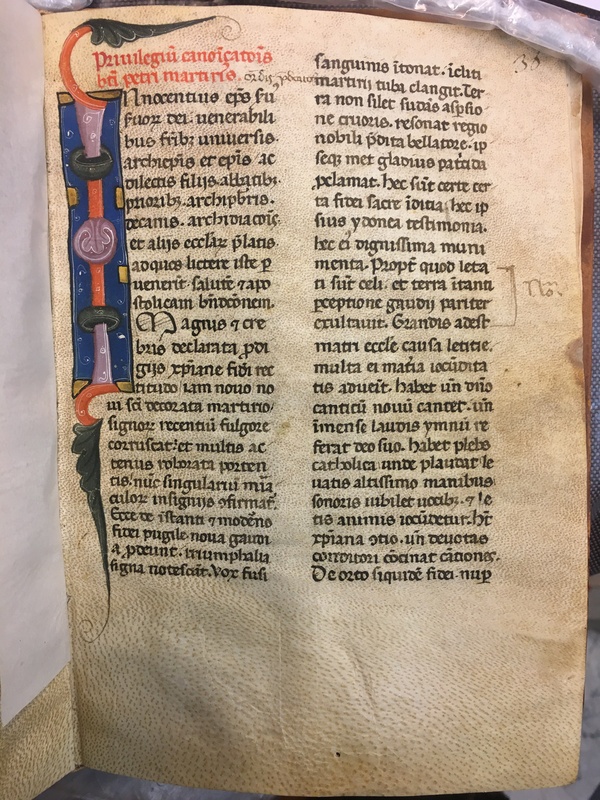 Priuilegiū canoniçatōis
bt̄i petri martiris. ordīs p̄dicatoꝝ
INnocentius ep̄s ẜu
ſuoꝝ dei. uenerabili
bus fr̄ibꝫ uniuerſis.
archiep̄is et ep̄is ac
dilectis filijs abbatibꝫ.
prioribꝫ. archipb̄ris.
decanis. archidiaconis
et alijs eccl̄aꝝ p̄latis
ad quos lictere iſte ꝑ
uenerit ſalutē ⁊ apo
ſtolicam bn̄dictōnem.
Magnis ⁊ cre
bris declarata ꝓdi
gijs xp̄iane fidei rec
titudo iam nouo no
ui ſc̄i decorata martirio
ſignoꝝ recentiū fulgore
corruſcat: et multis ac
tenus roborata porten
tis. nūc ſingulariū mīa
culoꝝ inſignijs ꝯfirmat̄.
Ecce de īſtanti ⁊ mod̄no
fidei pugile noua gaudi
a ꝓdeunt. triumphalia
ſigna noteſcūt. Vox fuſi
36
ſanguinis ītonat. īcliti
martirii tuba clangit. Ter
ra non ſilet ſudās aſpſio
ne cruoris. reſonat regio
nobili p̄dita bellatore. ip
ſeqꝫ met gladius pat̄icida
ꝓclamat. hec ſūt certe cer
ta fidei ſacre īditia. hec ip
ſius ydonea teſtimonia.
hec ei digniſſima muni
menta. Propt̄ quod leta
ti ſūt celi. et terra ītanti
ꝑceptione gaudij pariter
exultauit. Grandis adeſt
matri eccl̄e cauſa letitie.
multa ei mat̄ia iocūdita
tis aduēit. habet un̄ dn̄o
canticū nouū cantet. un̄
īmenſe laudis ymnū re
ferat deo ſuo. habet plebs
catholica unde plaudat le
uatis altiſſimo manibus
ſonoris iubilet uocibꝫ. ⁊ le
tis animis iocūdetur. hꝫt
xp̄iana ꝯtio. un̄ deuotas
conditori cōcinat cātiones.
De orto ſiquidē fidei nuꝑ